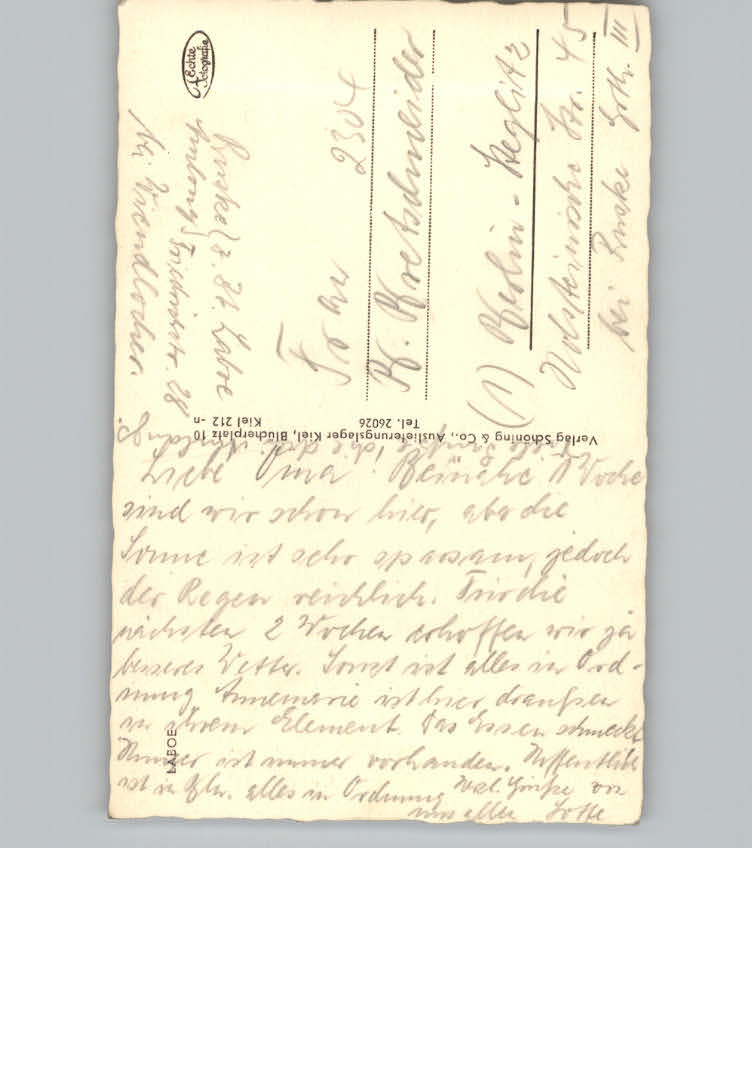 Echte Fotografie
Ruska z. Zt. Laboe
Friedrichstr. 28
bei Wiendlocher.
2304
Frau
B. Bretschneider
(1) Berlin-Steglitz
Holsteinische Str. 45
bei Ruska Gth. III
Verlag Schöning & Co., Auslieferungslager Kiel, Blücherplatz 10
Tel. 26026
Kiel 212 -n
LABOE
Liebe Oma! Beinahe 1 Woche
sind wir schon hier, aber die
Sonne ist sehr sparsam, jedoch
der Regen reichlich. Für die
nächsten 2 Wochen erhoffen wir ja
besseres Wetter. Sonst ist alles in Ord-
nung Annemarie ist hier draußen
in ihrem Element. Das Essen schmeckt
Hunger ist immer vorhanden. Hoffentlich
ist in Bln. alles in Ordnung Herzl. Grüße von
uns allen Lotte
Viele Grüße